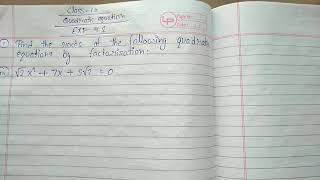 Class-10
Quadratic equation
Find the roots of the following quadratic
equation by factorisation:
√2x² + 7x + 5√2 = 0